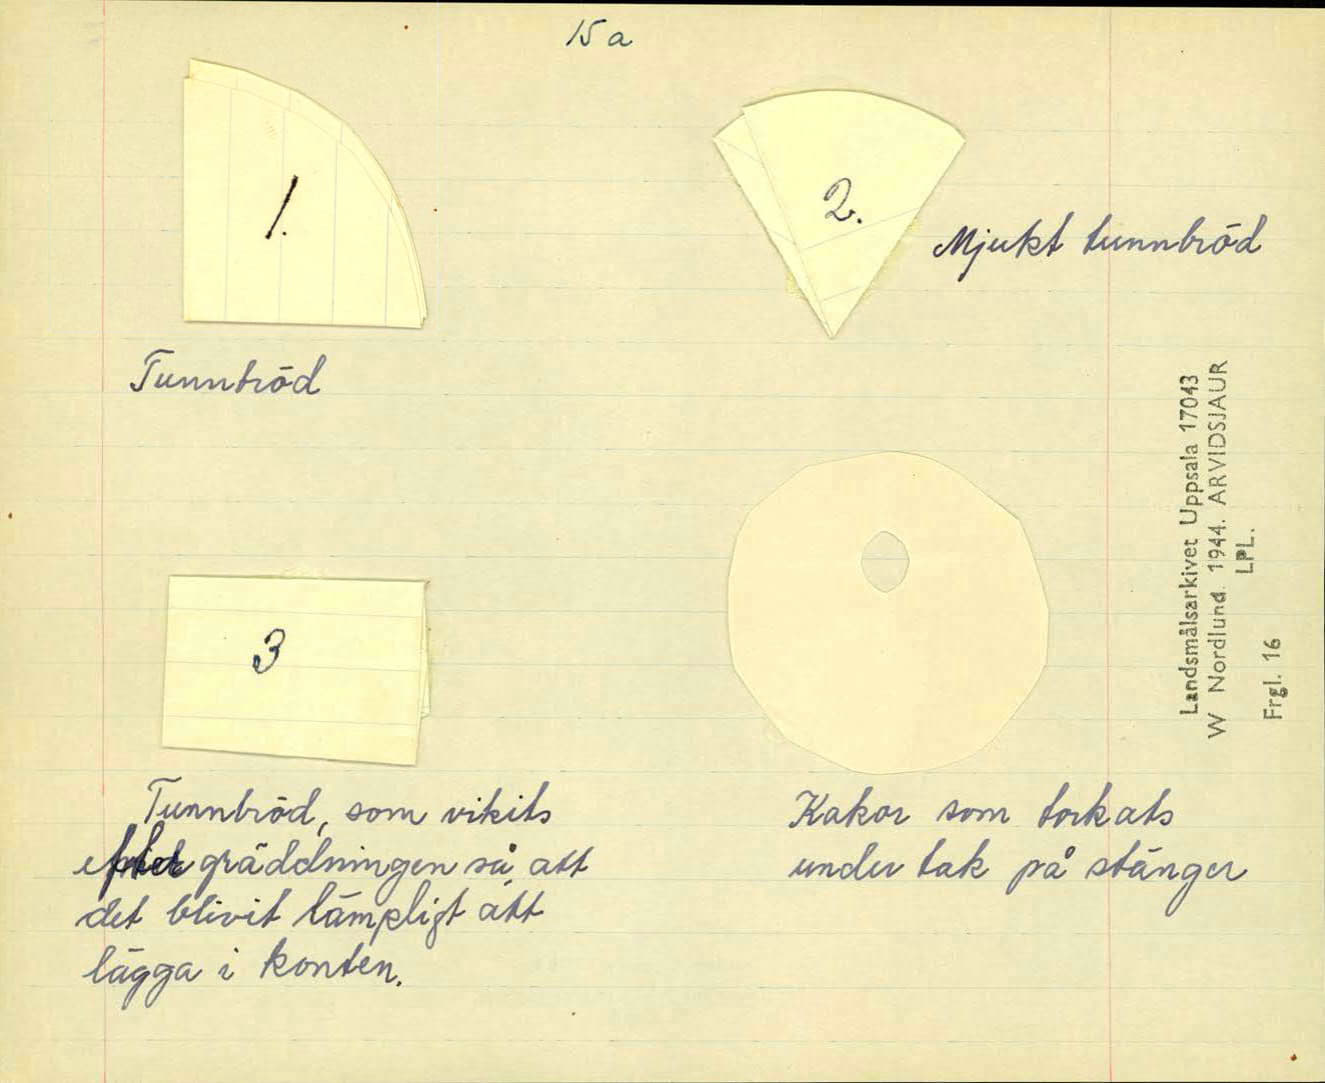 15 a
1.
2.
Mjukt tunnbröd
Tunnbröd
3
Tunnbröd, som vikits
efter gräddningen så att
det blivit lämpligt att
lägga i konten.
Kakor som torkats
under tak på stänger
Landsmålsarkivet Uppsala 17043
W Nordlund. 1944. ARVIDSJAUR
LPL.
Frgl. 16